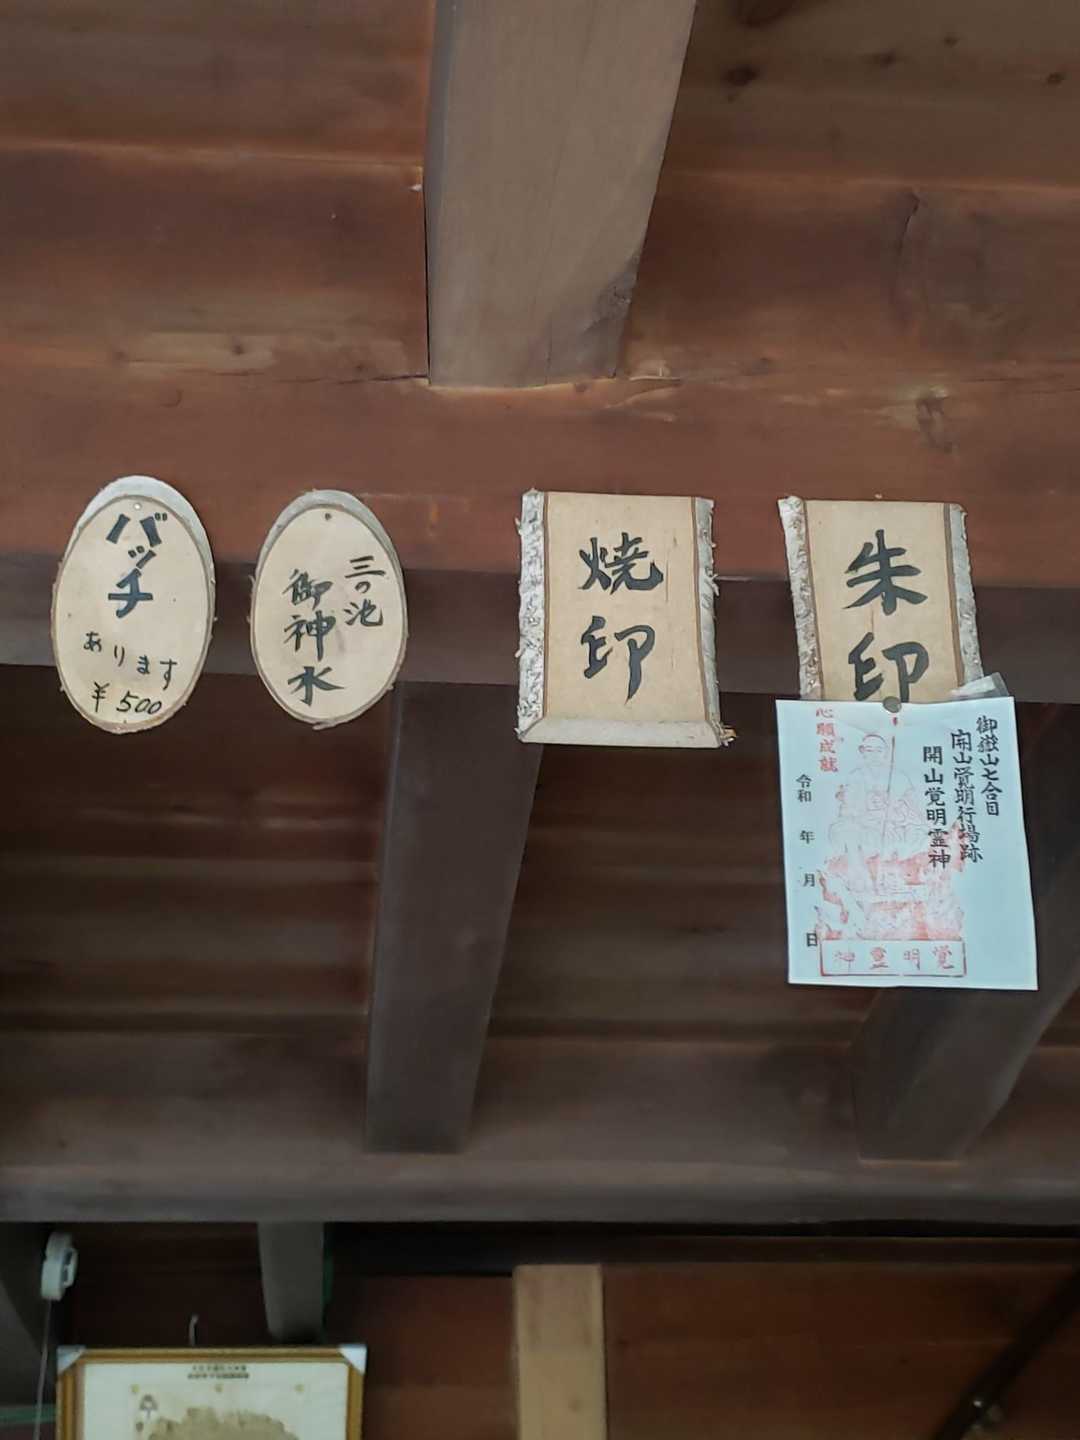 バッチ
あります
¥500
三の池
御神水
焼印
朱印
御嶽山七合目
開山覚明行場跡
開山覚明霊神
心願成就
令和 年 月 日
覚明霊神